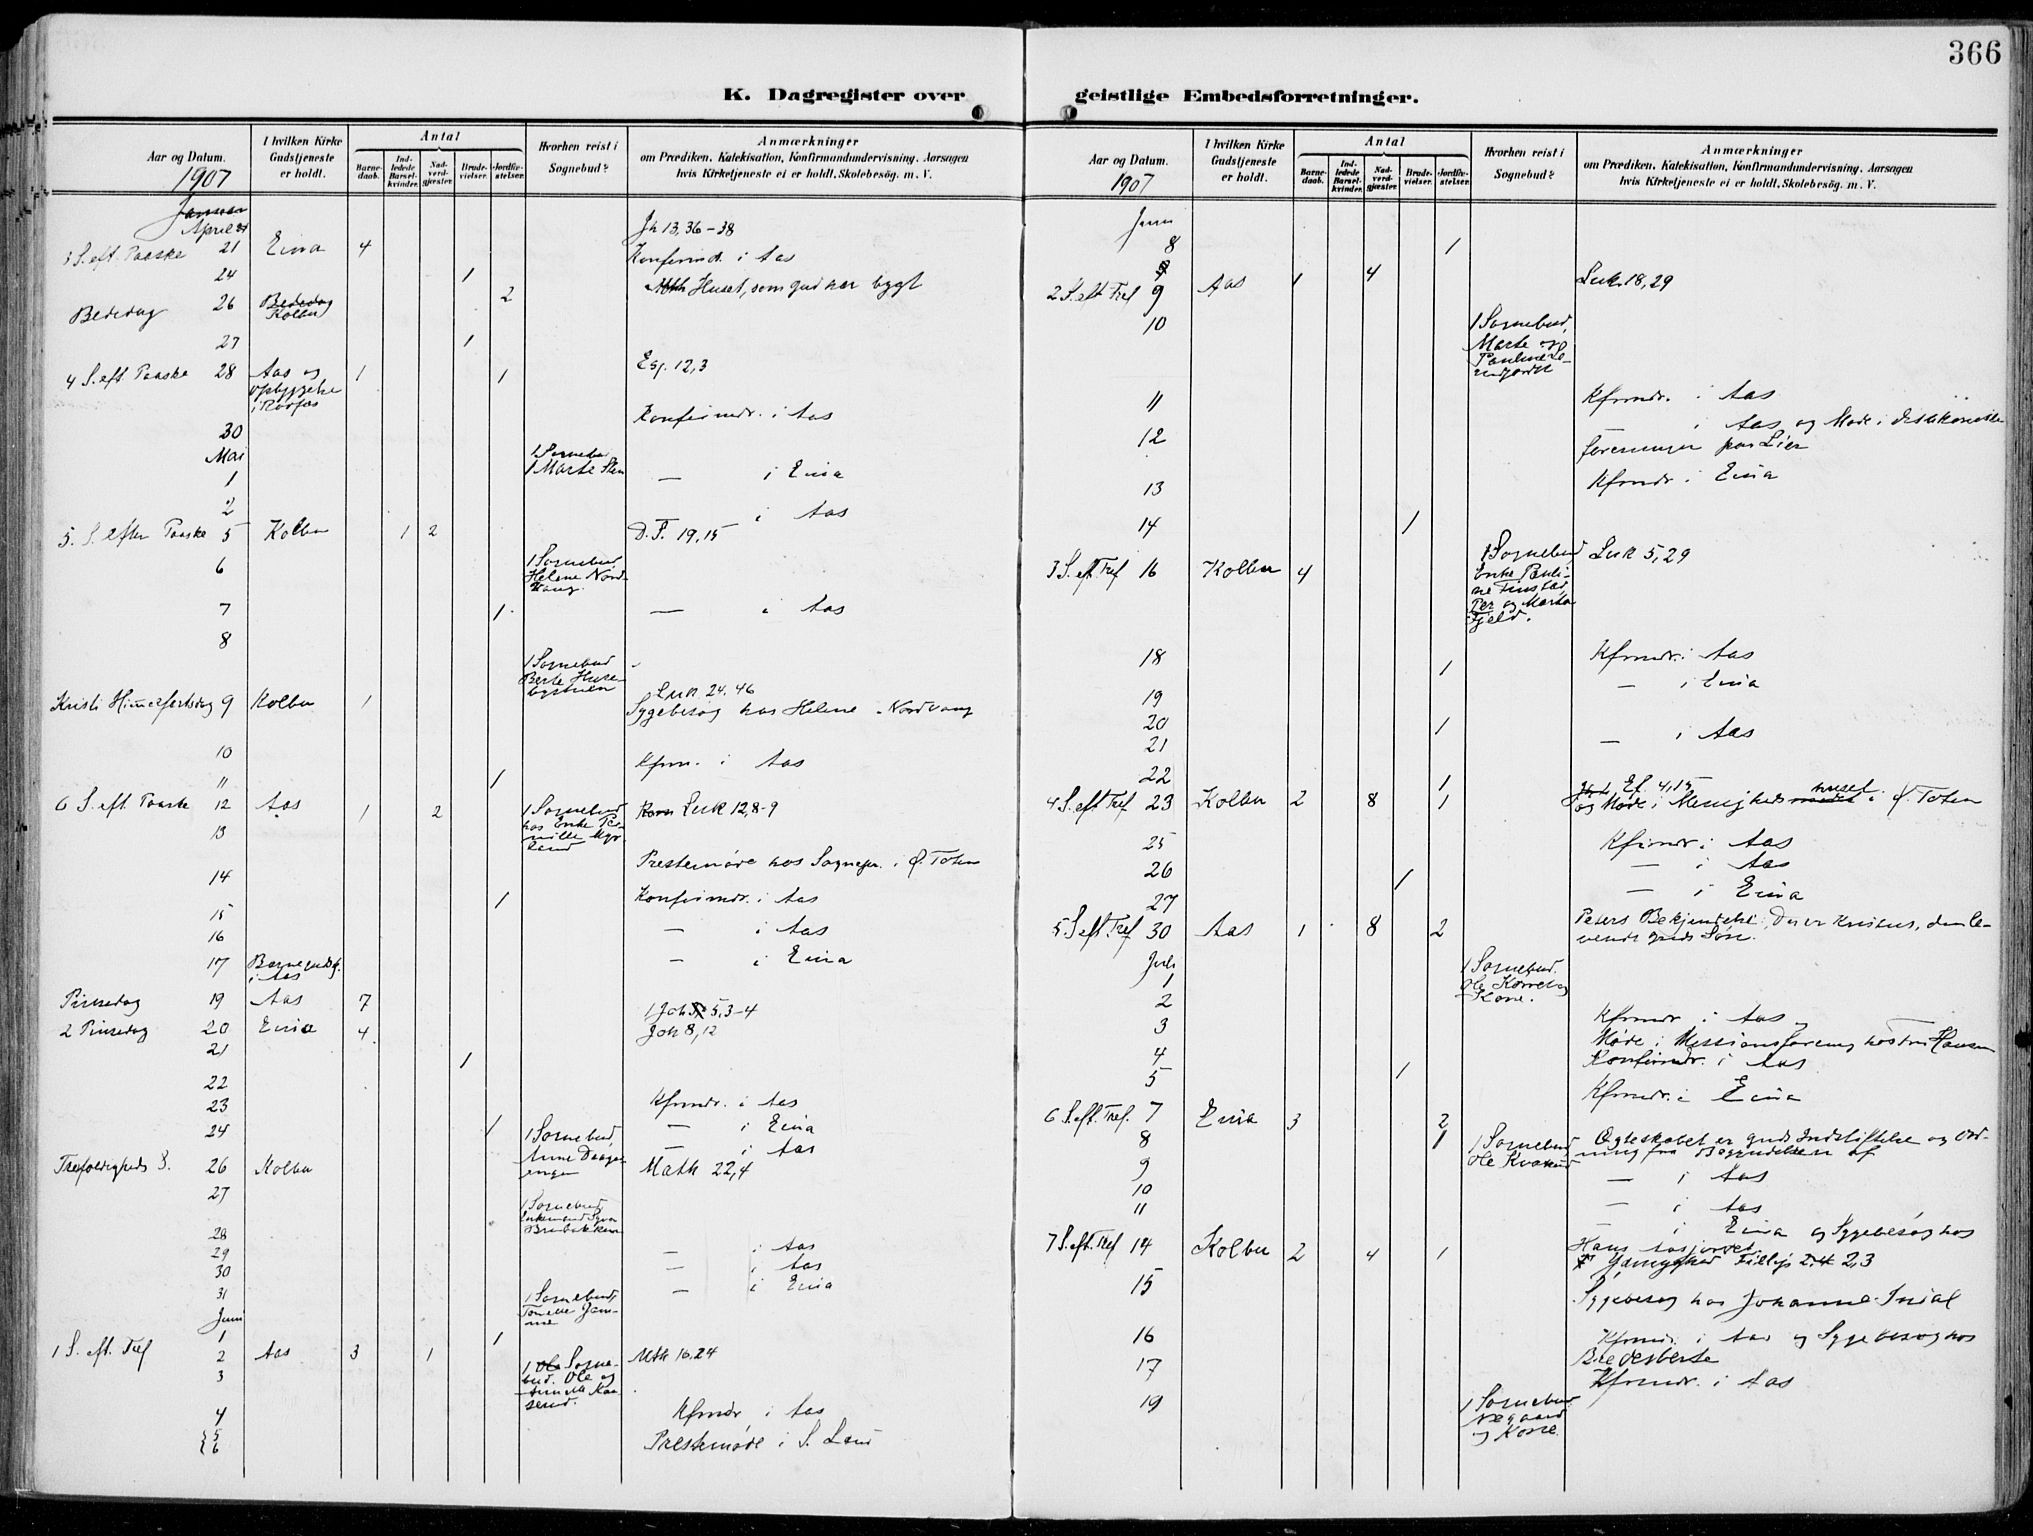 366
K. Dagregister over geistlige Embedsforretninger.
Aar og Datum.
1907
I hvilken Kirke Gudstjeneste er holdt.
Antal
Barnedaab.
Indledede Barselkvinder.
Nadverdgjester.
Brudevielser.
Jordfæstelser.
Hvorhen reist i Sognebud?
Anmærkninger
om Prædiken, Katekisation, Konfirmandundervisning, Aarsagen
hvis Kirketjeneste ei er holdt, Skolebesög, m. V.
Januar
April
3 S. eft. Paaske 21 Eina 4 Jh 13,36-38
24 1 Konfirmd. i Aas
Bededag 26 Bededag Kolbu 2 Mth Huset, som gud har bygt
27 1
4 S. eft. Paaske 28 Aas og 1 1 Esj. 12,3
opbyggelse
i
30 Konfirmdr. i Aas
Mai
1 1 Sognebud
1 Marte Sten — i Eina
2 i Aas
5. S. efter Paaske 5 Kolbu 1 2 D. F. 19,15
6 1 Sognebud
Helene Nord-
vang
7 1 — i Aas
8 1 Sognebud
Berte Huse-
bystuen
Kristi Himmelfartsdag 9 Kolbu 1 Luk 24,46
Sygebesøg hos Helene Nordvang
10 Kfrm. i Aas
11 1
6 S. eft. Paaske 12 Aas 1 2 Rom Luk 12,8-9
13 1 Sognebud
hos Enke Per-
nille Myr-
lund
14 Prestemøde hos Sognepr. i Ø. Toten
15 1 Konfirmdr. i Aas
16 — i Aas
17 Barnegudstj. i Aas — i Eina
Pinsedag 19 Aas 7 1 Joh 5,3-4
2 Pinsedag 20 Eina 4 Joh 8,12
21 1
22
23 Kfrmdr. i Aas
24 1 — i Eina
1 Sognebud,
Anne — i Aas
Trefoldigheds S. 26 Kolbu Math 22,4
27 1 Sognebud
28
29 — i Aas
30 — i Aas
31 — i Eina
1 Sognebud,
Juni
1 1
1 S. eft. Tref 2 Aas 3 1 Mth 16,24
3 1 Ole Sogne-
bud. Ole og
4 Kfmdr i Aas
5
6 Prestemøde i S. Land
Aar og Datum.
1907
I hvilken Kirke Gudstjeneste er holdt.
Antal
Barnedaab.
Indledede Barselkvinder.
Nadverdgjester.
Brudevielser.
Jordfæstelser.
Hvorhen reist i Sognebud?
Anmærkninger
om Prædiken, Katekisation, Konfirmandundervisning, Aarsagen
hvis Kirketjeneste ei er holdt, Skolebesög, m. V.
Juni
8 1
2 S. eft Tref 9 Aas 1 4 Luk. 18,29
10 1 Sognebud,
Marte og
Pauline
11 Kfrmdr. i Aas
12 i Aas og Møde i
foreningen paa Lier
13 Kfrmdr. i Eina
14 1
3 S. eft. Tref 16 Kolbu 4 Luk 5,29
1 Sognebud
Enke Pauli-
ne Finstad,
Per og Marta
Fjeld.
18 1 Kfrmdr. i Aas
19 — i Eina
20 1
21 — i Aas
22 1
4 S. eft Tref 23 Kolbu 2 8 1 Ef. 4,15
og Møde i Menigheds mødet huset i Ø. Toten
25 Kfrmdr i Aas
26 1 — i Aas
27 — i Eina
5 S eft Tref 30 Aas 1 8 2 Peters Bekjendelse: Du er Kristus, den le-
vende guds Søn.
Juli
1 1 Sognebud.
Ole
2
3 Kfrmdr i Aas
4 Møde i Missionsforening hos Fru Hansen
5 1 Konfirmdr. i Aas
Kfrmdr. i Eina
6 S. eft. Tref. 7 Eina 3 2
8 1 1 Sognebud
Ole
Ægteskabet er guds Indstiftelse og Ord-
ning fra Begyndelsen af
9 — i Aas
10 — i Aas
11 — i Eina og Sygebesøg hos
Hans
7 S. eft. Tref 14 Kolbu 2 4 1 Fillip 2,4 2,3
15 Sygebesøg hos Johanne
16 Kfrmdr. i Aas og Sygebesøg hos
17
Kfrmdr. i Aas
19 1 Sognebud